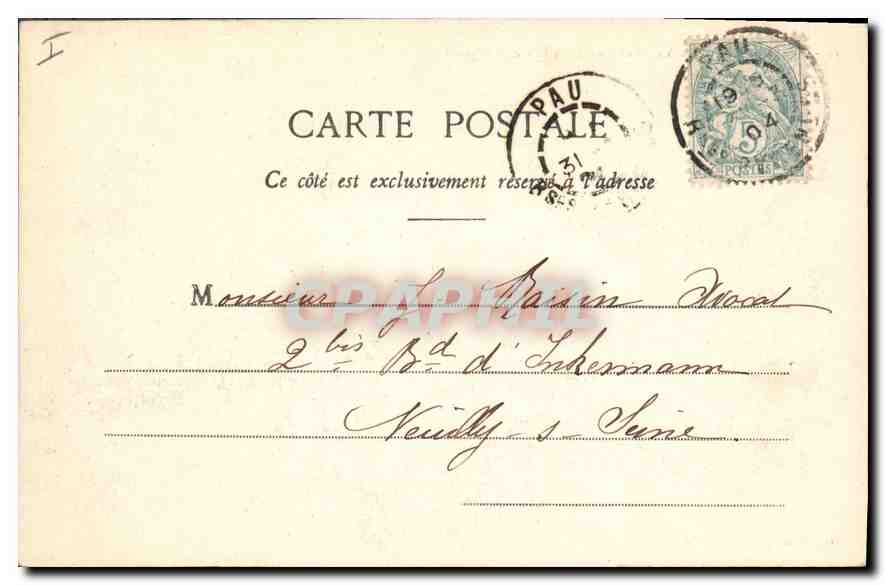 I
CARTE POSTALE
PAU
31
PAU
19
04
5
POSTES
Ce côté est exclusivement réservé à l'adresse
CPAPHIL
Monsieur J. Barsin Avocat
2 bis Bd d'Inkermann
Neuilly s Seine